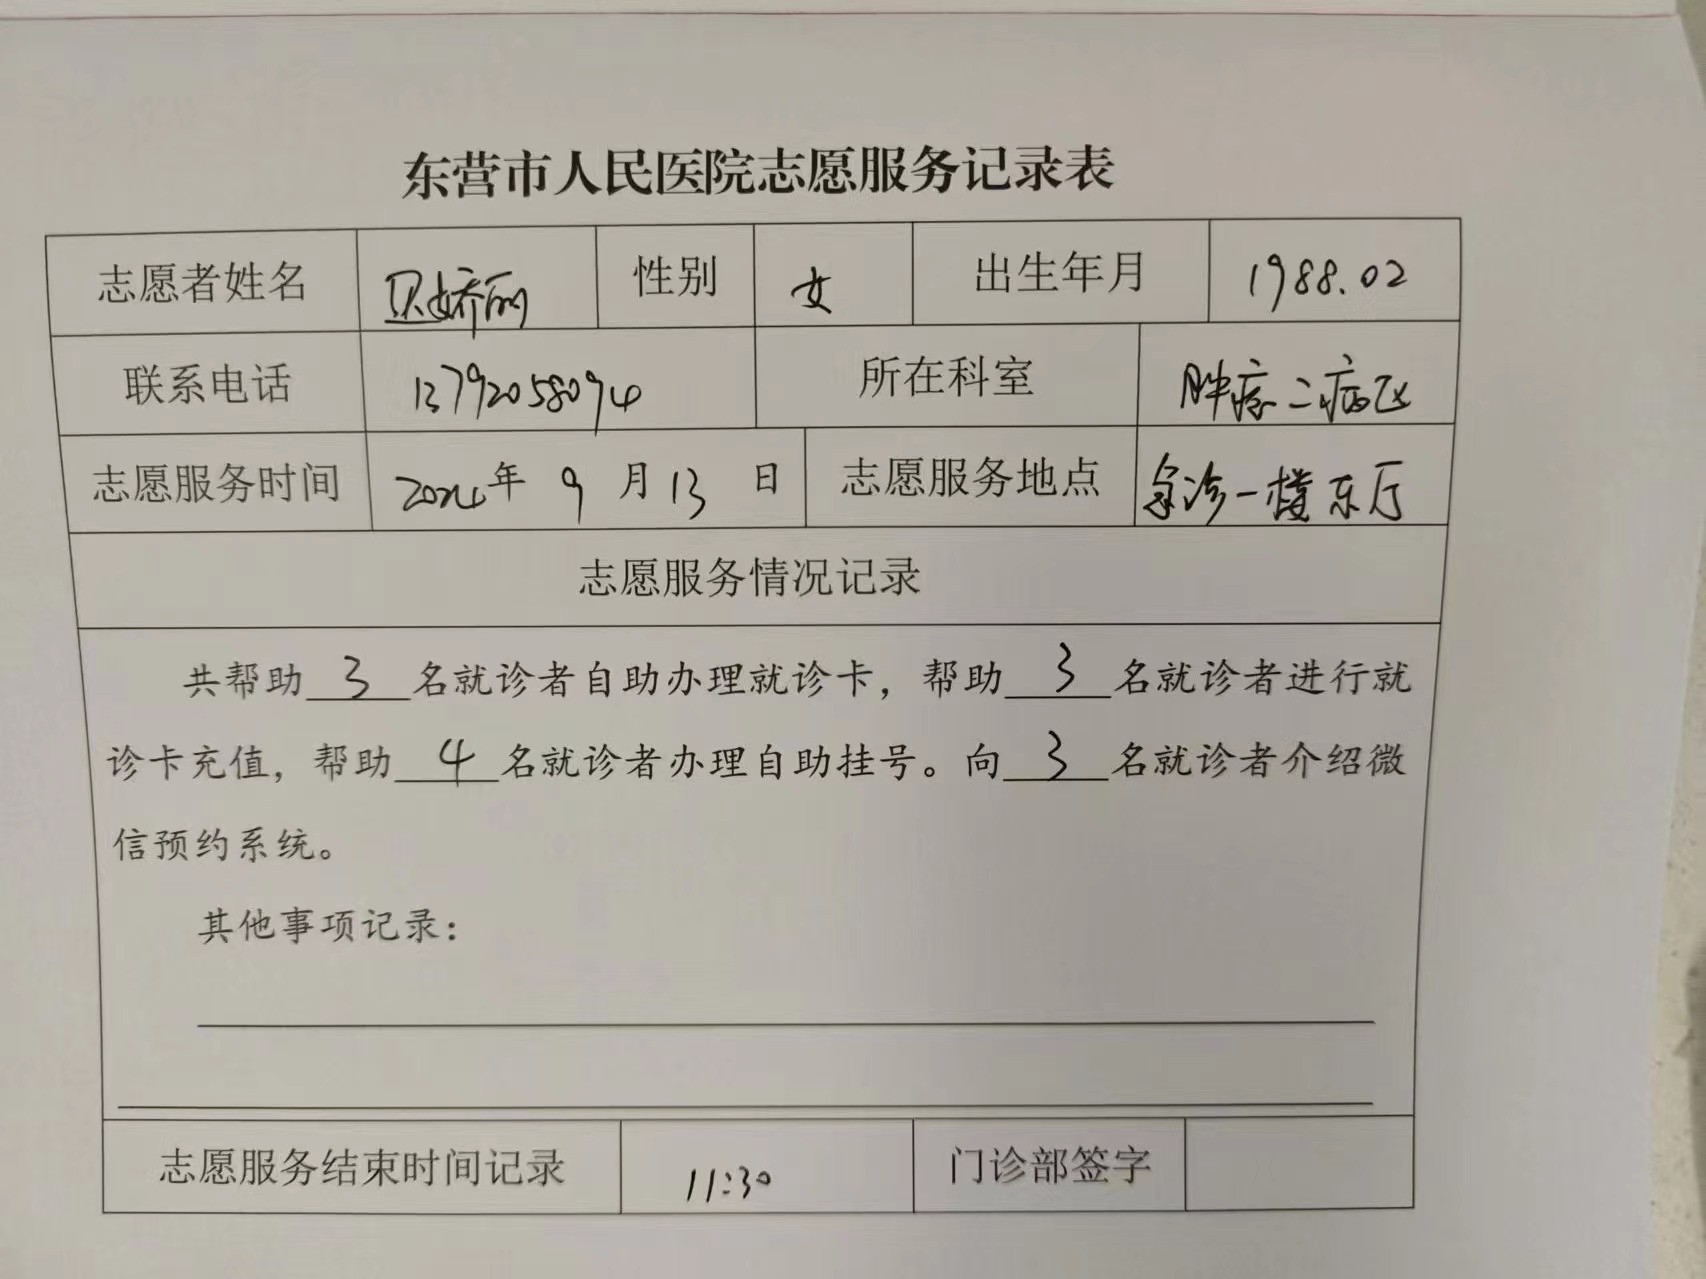 东营市人民医院志愿服务记录表
志愿者姓名 贝娇丽 性别 女 出生年月 1988.02
联系电话 13792058094 所在科室 肿瘤二病区
志愿服务时间 2024年 9 月 13 日 志愿服务地点 急诊一楼东厅
志愿服务情况记录
共帮助 3 名就诊者自助办理就诊卡，帮助 3 名就诊者进行就
诊卡充值，帮助 4 名就诊者办理自助挂号。向 3 名就诊者介绍微
信预约系统。
其他事项记录：
志愿服务结束时间记录 11:30 门诊部签字